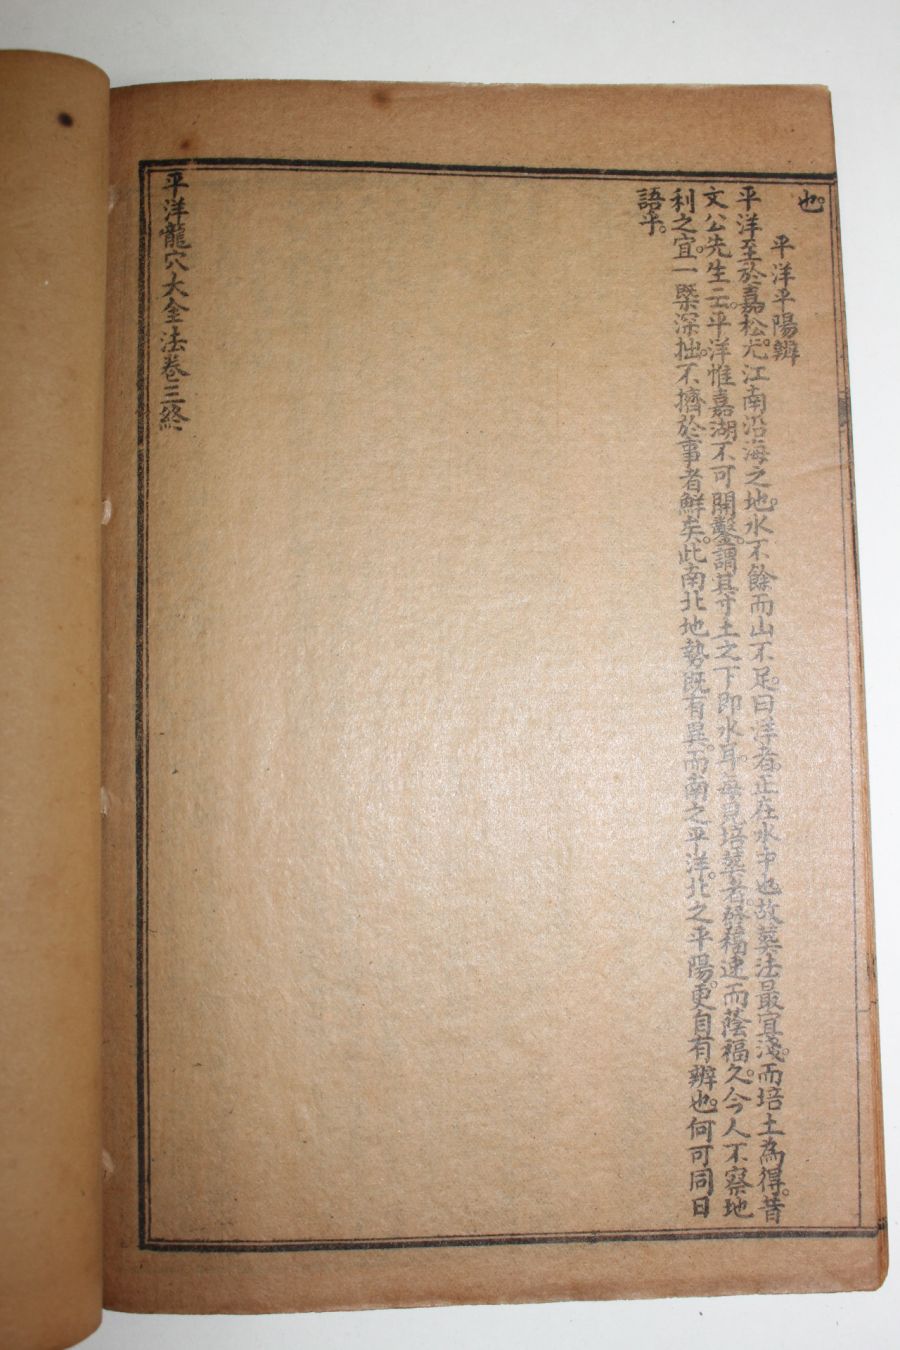 也。
平洋平陽辨
平洋至於嘉松。尤江南沿海之地。水不餘而山不足。曰洋者正在水中也。故葬法最宜淺。而培土為得。昔
文公先生云。平洋惟嘉湖不可開鑿。謂其寸土之下即水耳。每見培葬者。發福速而蔭福久。今人不察地
利之宜。一槩深拙。不擠於事者鮮矣。此南北地勢既有異。而南之平洋。北之平陽。更自有辨也。何可同日
語乎。
平洋龍穴大全法卷三終